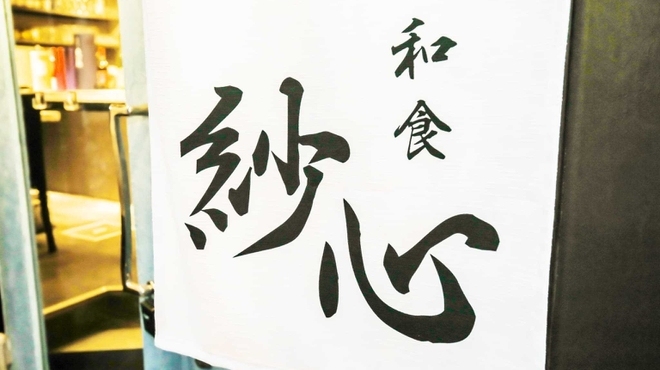 和食
紗心